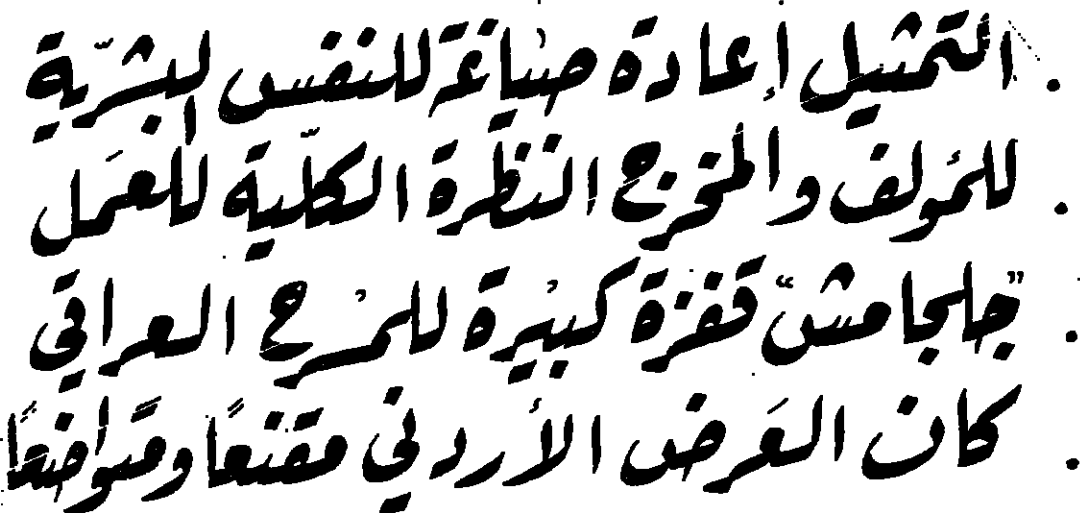 . التمثيل إعادة صياغة للنفس البشريّة
. للمؤلف والمخرج النظرة الكلّية للعمل
. "جلجامش" قفزة كبيرة للمسرح العراقي
. كان العرض الأردني مقنعاً ومتواضعاً